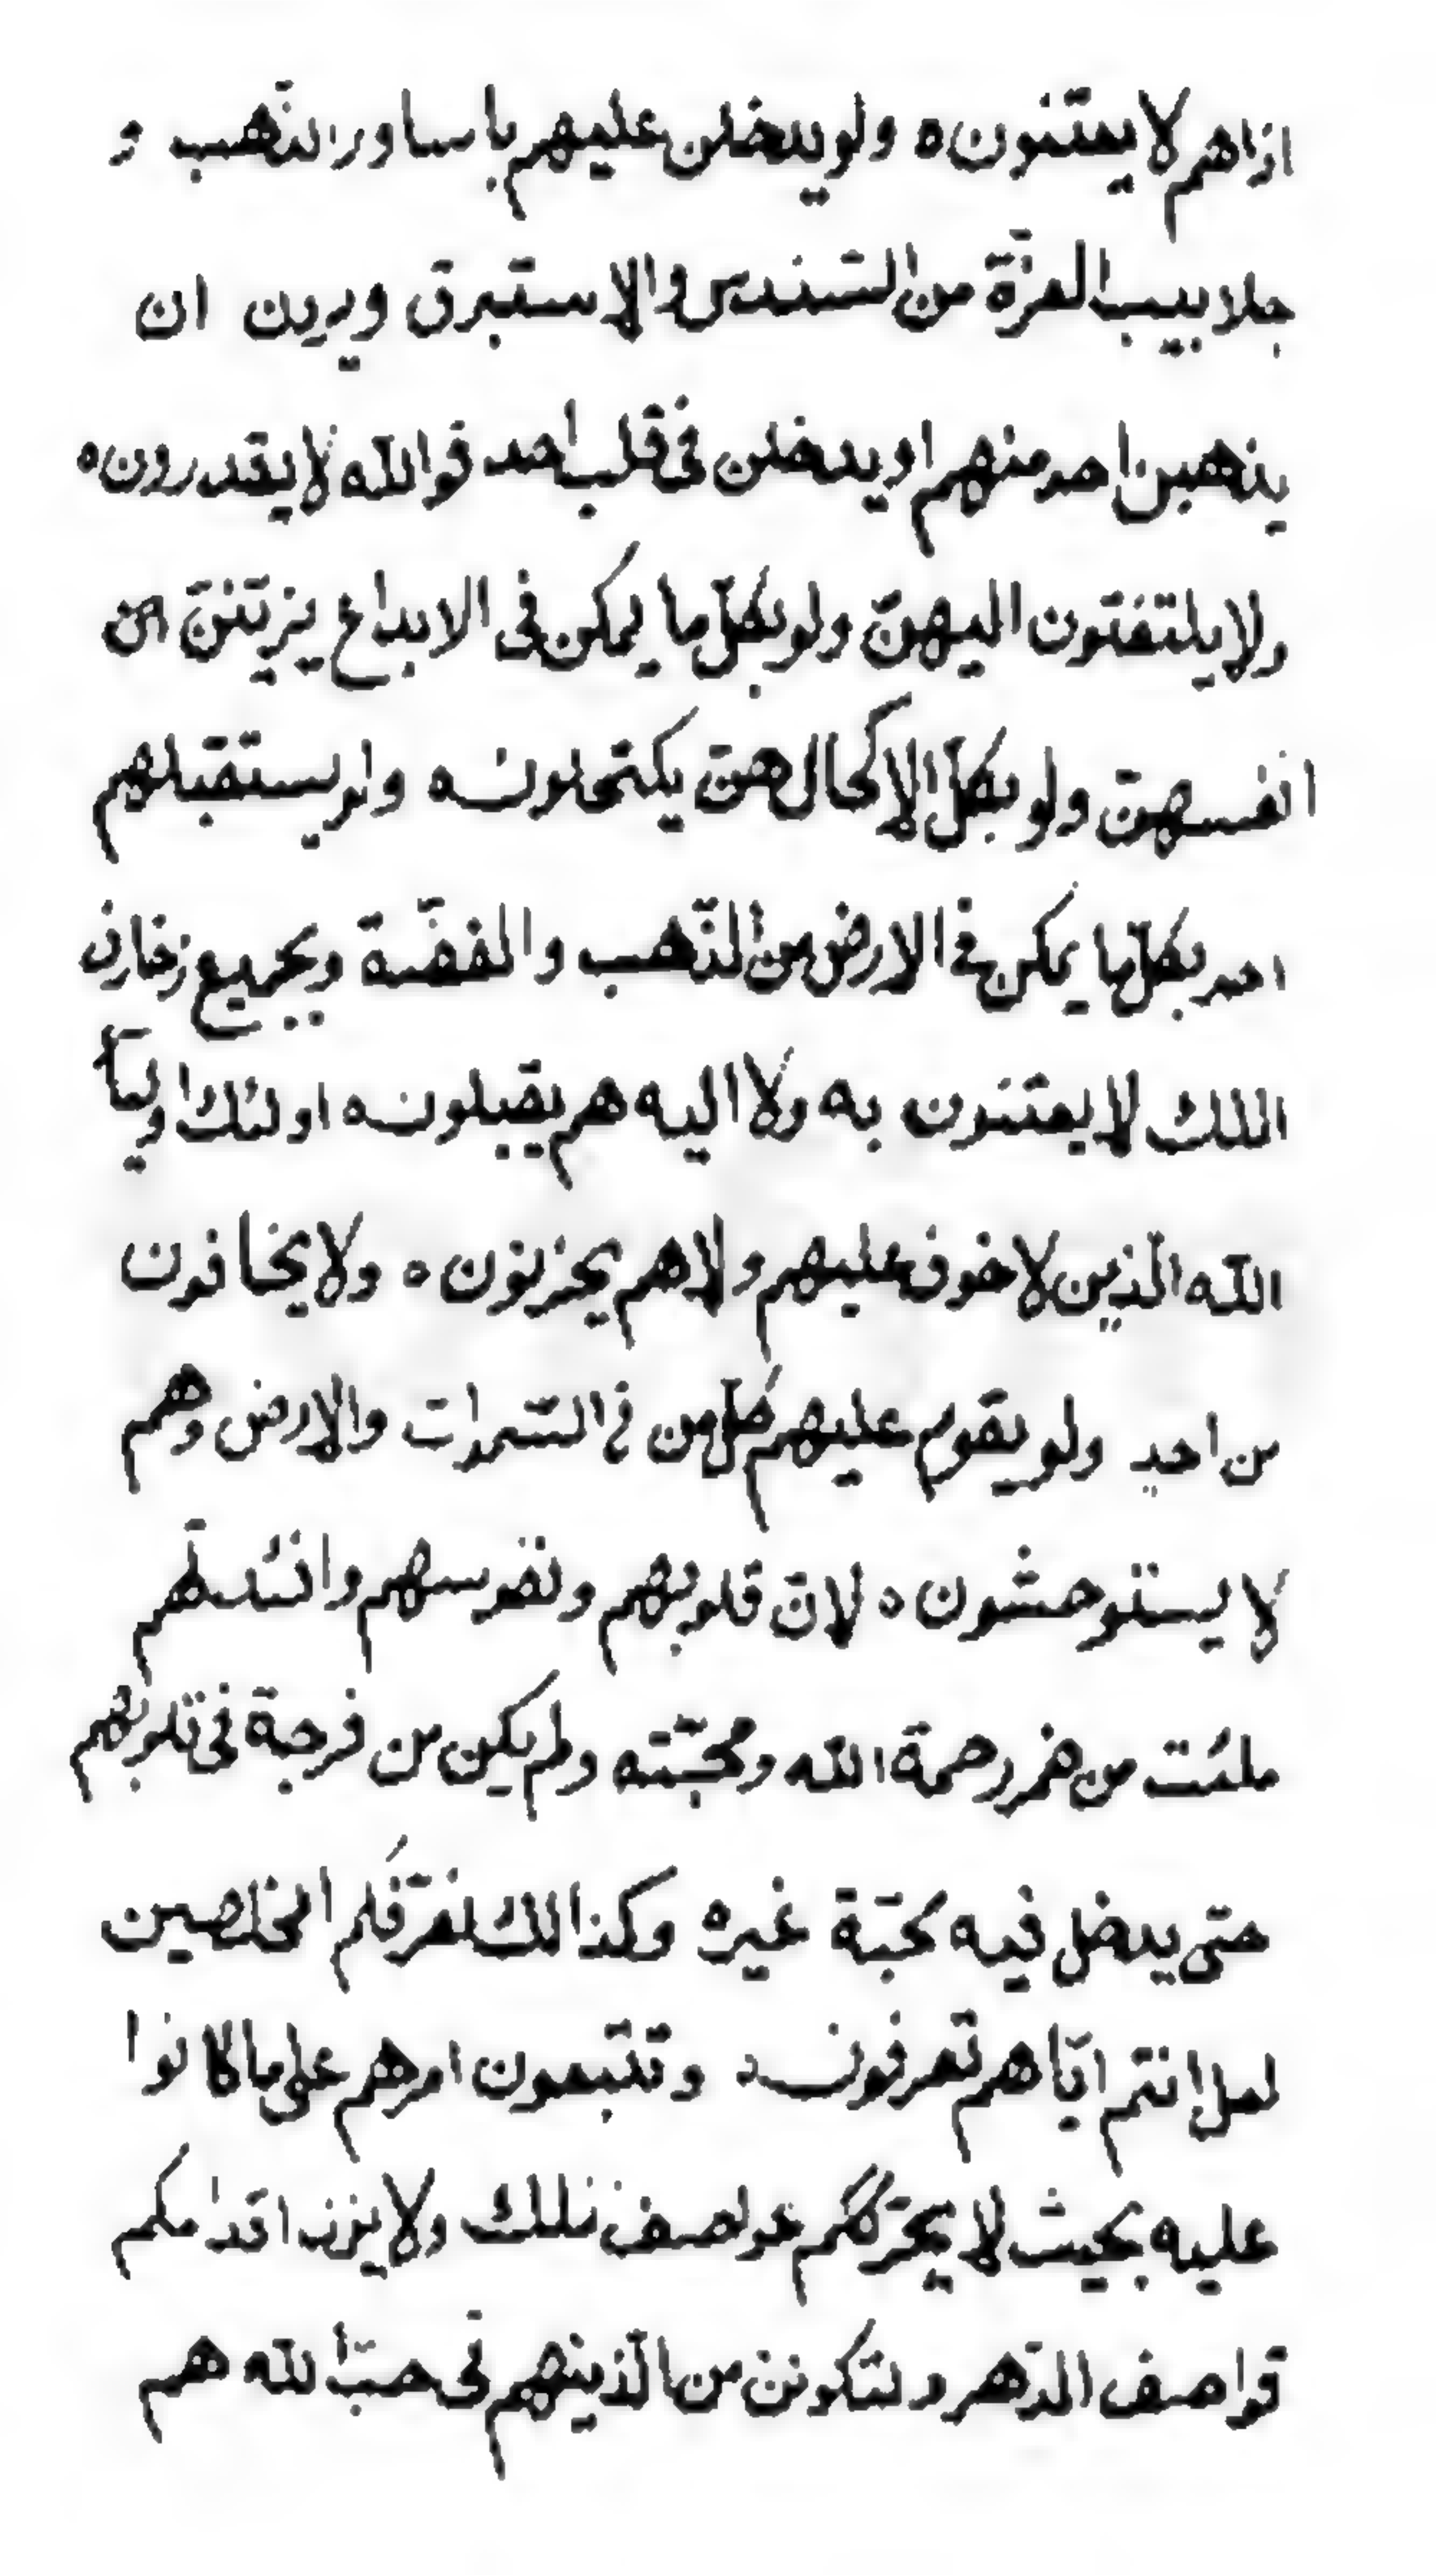 اذاهم لا يعتنون ه ولو يدخلن عليهم باساور الذّهب و
جلابيب العزّة من السّندس والاستبرق ويرين ان
يذهبن احد منهم او يدخلن فى قلب احد فوالله لا يقدرون ه
ولا يلتفتون اليهنّ ولو بكلّ ما يمكن فى الابداع يزيّننّ هن
انفسهنّ ولو بكلّ الاكحال هنّ يكتحلون ه ولو يستقبلهم
احد بكلّ ما يمكن فى الارض من الذّهب والفضّة وبجميع زخارف
الملك لا يعتنون به ولا اليه هم يقبلون ه اولئك اولياۤ
الله الّذين لا خوف عليهم ولا هم يحزنون ه ولا يخافون
من احدٍ ولو يقوم عليهم كلّ من فى السّموات والارض وهم
لا يستوحشون ه لانّ قلوبهم ونفوسهم وافئدتهم
ملئت من خمر رحمة الله ومحبّته ولم يكن من فرجة فى قلوبهم
حتى يدخل فيه محبّة غيره وكذالك نعرّفكم المخلصين
لعل انتم ايّاهم تعرفون ه وتتبعون امرهم على ما كانوا
عليه بحيث لا يحرّككم عواصف الملك ولا يزل اقدامكم
قواصف الدّهر ولتكونن من الّذينهم فى حبّ الله هم